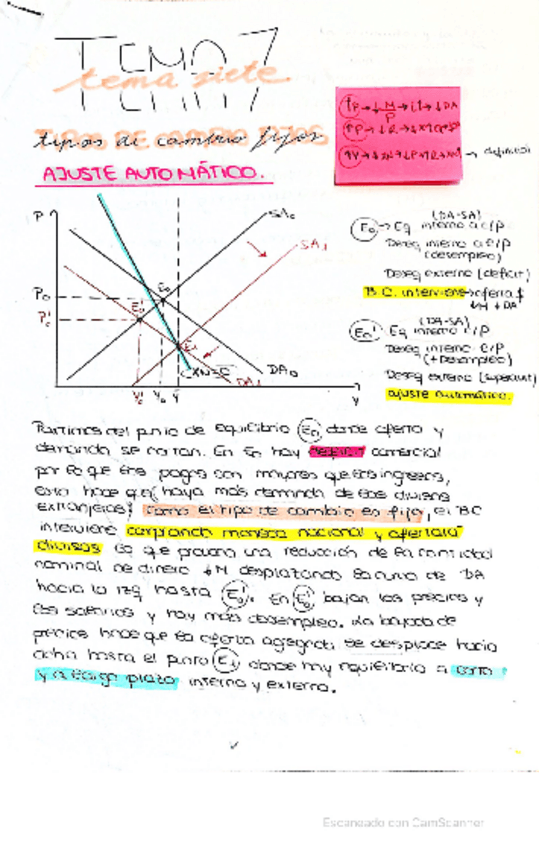 TEMA 7
tema siete
tipos de cambio fijos
AJUSTE AUTOMÁTICO.
↑P→↓M/P→i↑→↓DA
↑P→↓R→
P
SA₀
SA₁
P₀
P₀'
E₀
E₀'
E₁
XN=0
DA₀
DA₁
Y₀'
Y₀
Ȳ
Y
E₀ → Eq interno a c/p
(DA-SA)
Deseq interno a l/p
(desempleo)
Deseq externo (deficit)
B C. interviene→oferta $
↓M ↓DA
E₀' Eq interno c/p
(DA-SA)
Deseq interno l/p
(+desempleo)
Deseq externo (superavit)
ajuste automático.
Partimos del punto de equilibrio E₀ donde oferta y
demanda se cortan. En E₀ hay deficit comercial
por lo que los pagos son mayores que los ingresos,
esto hace que haya más demanda de las divisas
extranjeras, como el tipo de cambio es fijo, el BC
interviene comprando moneda nacional y ofertará
divisas lo que provoca una reducción de la cantidad
nominal de dinero ↓M desplazando la curva de DA
hacia la izq hasta E₀'. En E₀' bajan los precios y
los salarios y hay más desempleo. La bajada de
precios hace que la oferta agregada se desplace hacia
dcha hasta el punto E₁ donde hay equilibrio a corto
y a largo plazo interno y externo.
Escaneado con CamScanner